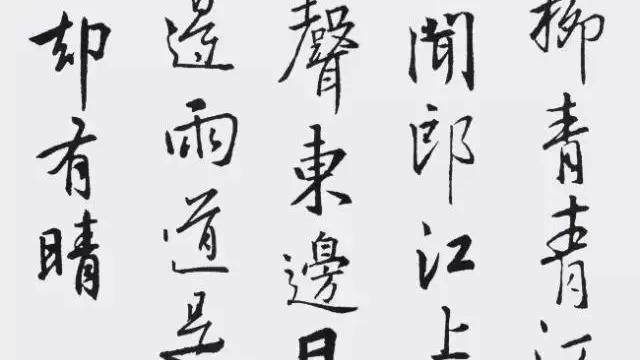 柳青青江
聞郎江上
聲東邊日
邊雨道是
却有晴